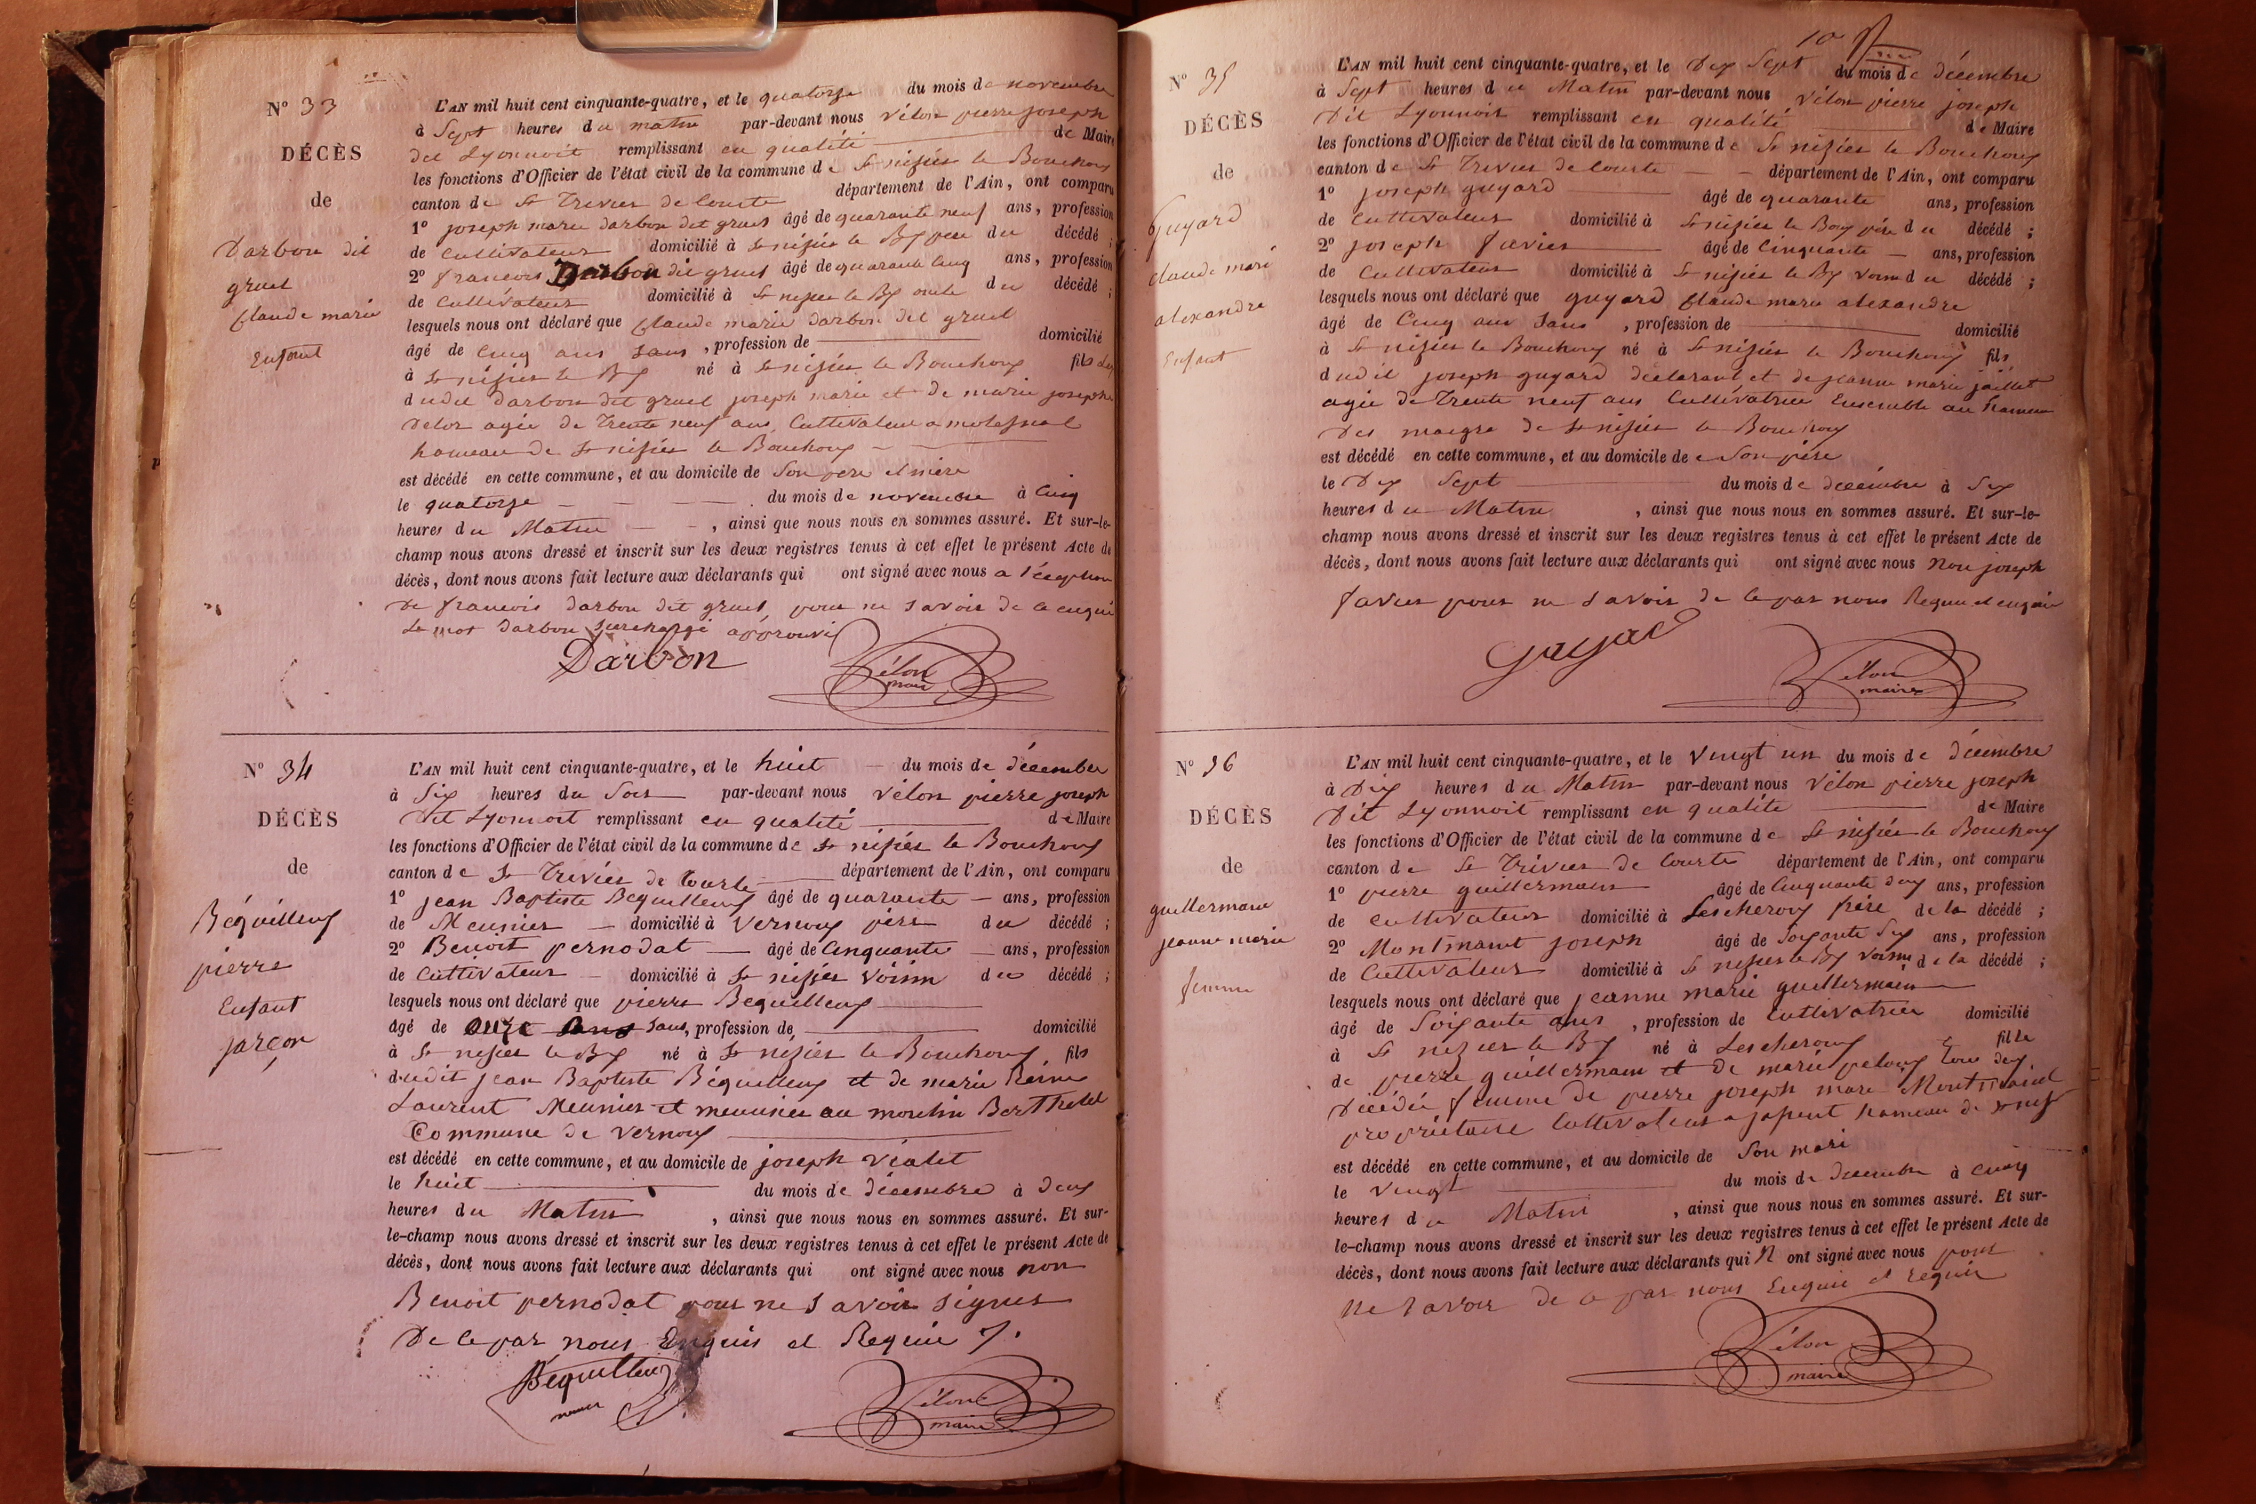 N° 33
DÉCÈS
de
Darbon dit
gruel
Claude marie
Enfant
L'AN mil huit cent cinquante-quatre, et le quatorze du mois de novembre
à Sept heures du matin par-devant nous Vélon pierre joseph
dit Lyonnoit remplissant en qualité de Maire
les fonctions d'Officier de l'état civil de la commune de St nisier le Bouchoux
canton de St Trivier de Courte département de l'Ain, ont comparu
1° joseph marie darbon dit gruel âgé de quarante neuf ans, profession
de Cultivateur domicilié à St nisier le Bx père du décédé ;
2° francois Darbon dit gruel âgé de quarante Cinq ans, profession
de Cultivateur domicilié à St nisier le Bx oncle du décédé ;
lesquels nous ont déclaré que Claude marie darbon dit gruel
âgé de Cinq ans Sans, profession de domicilié
à St nisier le Bx né à St nisier le Bouchoux fils
dudit darbon dit gruel joseph marie et de marie josephe
Delor agée de Trente neuf ans, Cultivateur a
hameau de St nisier le Bouchoux
est décédé en cette commune, et au domicile de Son père et mère
le quatorze du mois de novembre à Cinq
heures du Matin, ainsi que nous nous en sommes assuré. Et sur-le-
champ nous avons dressé et inscrit sur les deux registres tenus à cet effet le présent Acte de
décès, dont nous avons fait lecture aux déclarants qui ont signé avec nous a l'éxeption
De francois darbon dit gruel, pour ne savoir de ce enquis
Le mot darbon surchargé approuvé
Darbon Vélon
maire
N° 34
DÉCÈS
de
Béquilleux
pierre
Enfant
garçon
L'AN mil huit cent cinquante-quatre, et le huit du mois de décember
à Six heures du Soir par-devant nous Vélon pierre joseph
Dit Lyonnoit remplissant en qualité de Maire
les fonctions d'Officier de l'état civil de la commune de St nisier le Bouchoux
canton de St Trivier de Courte département de l'Ain, ont comparu
1° jean Baptiste Bequilleux âgé de quarante ans, profession
de Meunier domicilié à Vernoux père du décédé ;
2° Benoit pernodat âgé de Cinquante ans, profession
de Cultivateur domicilié à St nisier Voisin du décédé ;
lesquels nous ont déclaré que pierre Bequilleux
âgé de onze ans Sans, profession de domicilié
à St nisier le Bx né à St nisier le Bouchoux, fils
dudit jean Baptiste Béquilleux et de marie Reine
Laurent Meunier et meunier au moulin Berthelet
Commune de Vernoux
est décédé en cette commune, et au domicile de joseph Vialet
le huit du mois de décembre à deux
heures du Matin, ainsi que nous nous en sommes assuré. Et sur-
le-champ nous avons dressé et inscrit sur les deux registres tenus à cet effet le présent Acte de
décès, dont nous avons fait lecture aux déclarants qui ont signé avec nous non
Benoit pernodat pour ne savoir signer
De ce par nous Enquis et Requie
Béquilleux Vélon
maire
N° 35
DÉCÈS
de
Guyard
claude marie
alexandre
Enfant
L'AN mil huit cent cinquante-quatre, et le Dix Sept du mois de décembre
à Sept heures du Matin par-devant nous Vélon pierre joseph
Dit Lyonnoit remplissant en qualité de Maire
les fonctions d'Officier de l'état civil de la commune de St nisier le Bouchoux
canton de St Trivier de Courte département de l'Ain, ont comparu
1° joseph guyard âgé de quarante ans, profession
de Cultivateur domicilié à St nisier le Boux père du décédé ;
2° joseph favier âgé de Cinquante ans, profession
de Cultivateur domicilié à St nisier le Bx Voisin du décédé ;
lesquels nous ont déclaré que guyard Claude marie alexandre
âgé de Cinq ans Sans, profession de domicilié
à St nisier le Bouchoux né à St nisier le Bouchoux fils
dudit joseph guyard déclarant et de jeanne marie jaillet
agée de Trente neuf ans Cultivatrice Ensemble au hameau
Des de St nisier le Bouchoux
est décédé en cette commune, et au domicile de Son père
le Dix Sept du mois de décembre à Six
heures du Matin, ainsi que nous nous en sommes assuré. Et sur-le-
champ nous avons dressé et inscrit sur les deux registres tenus à cet effet le présent Acte de
décès, dont nous avons fait lecture aux déclarants qui ont signé avec nous Non joseph
favier pour ne savoir de ce par nous Requie et enquis
guyard Vélon
maire
N° 36
DÉCÈS
de
guillermain
jeanne marie
femme
L'AN mil huit cent cinquante-quatre, et le Vingt un du mois de décembre
à Dix heures du Matin par-devant nous Vélon pierre joseph
Dit Lyonnoit remplissant en qualité de Maire
les fonctions d'Officier de l'état civil de la commune de St nisier le Bouchoux
canton de St Trivier de Courte département de l'Ain, ont comparu
1° pierre guillermain âgé de Cinquante deux ans, profession
de cultivateur domicilié à Lescheroux frère de la décédé ;
2° Montmaint joseph âgé de Soixante Six ans, profession
de Cultivateur domicilié à St nisier le Bx Voisin de la décédé ;
lesquels nous ont déclaré que jeanne marie guillermain
âgé de Soixante ans, profession de Cultivatrice domicilié
à St nizier le Bx né à Lescheroux fille
de pierre guillermain et de marie peloux tous deux
Décédée femme de pierre joseph mare
propriétaire Cultivateur a hameau de
est décédé en cette commune, et au domicile de Son mari
le Vingt du mois de décembre à Cinq
heures du Matin, ainsi que nous nous en sommes assuré. Et sur-
le-champ nous avons dressé et inscrit sur les deux registres tenus à cet effet le présent Acte de
décès, dont nous avons fait lecture aux déclarants qui N ont signé avec nous pour
Ne Savoir de ce par nous Enquie et requie
Vélon
maire